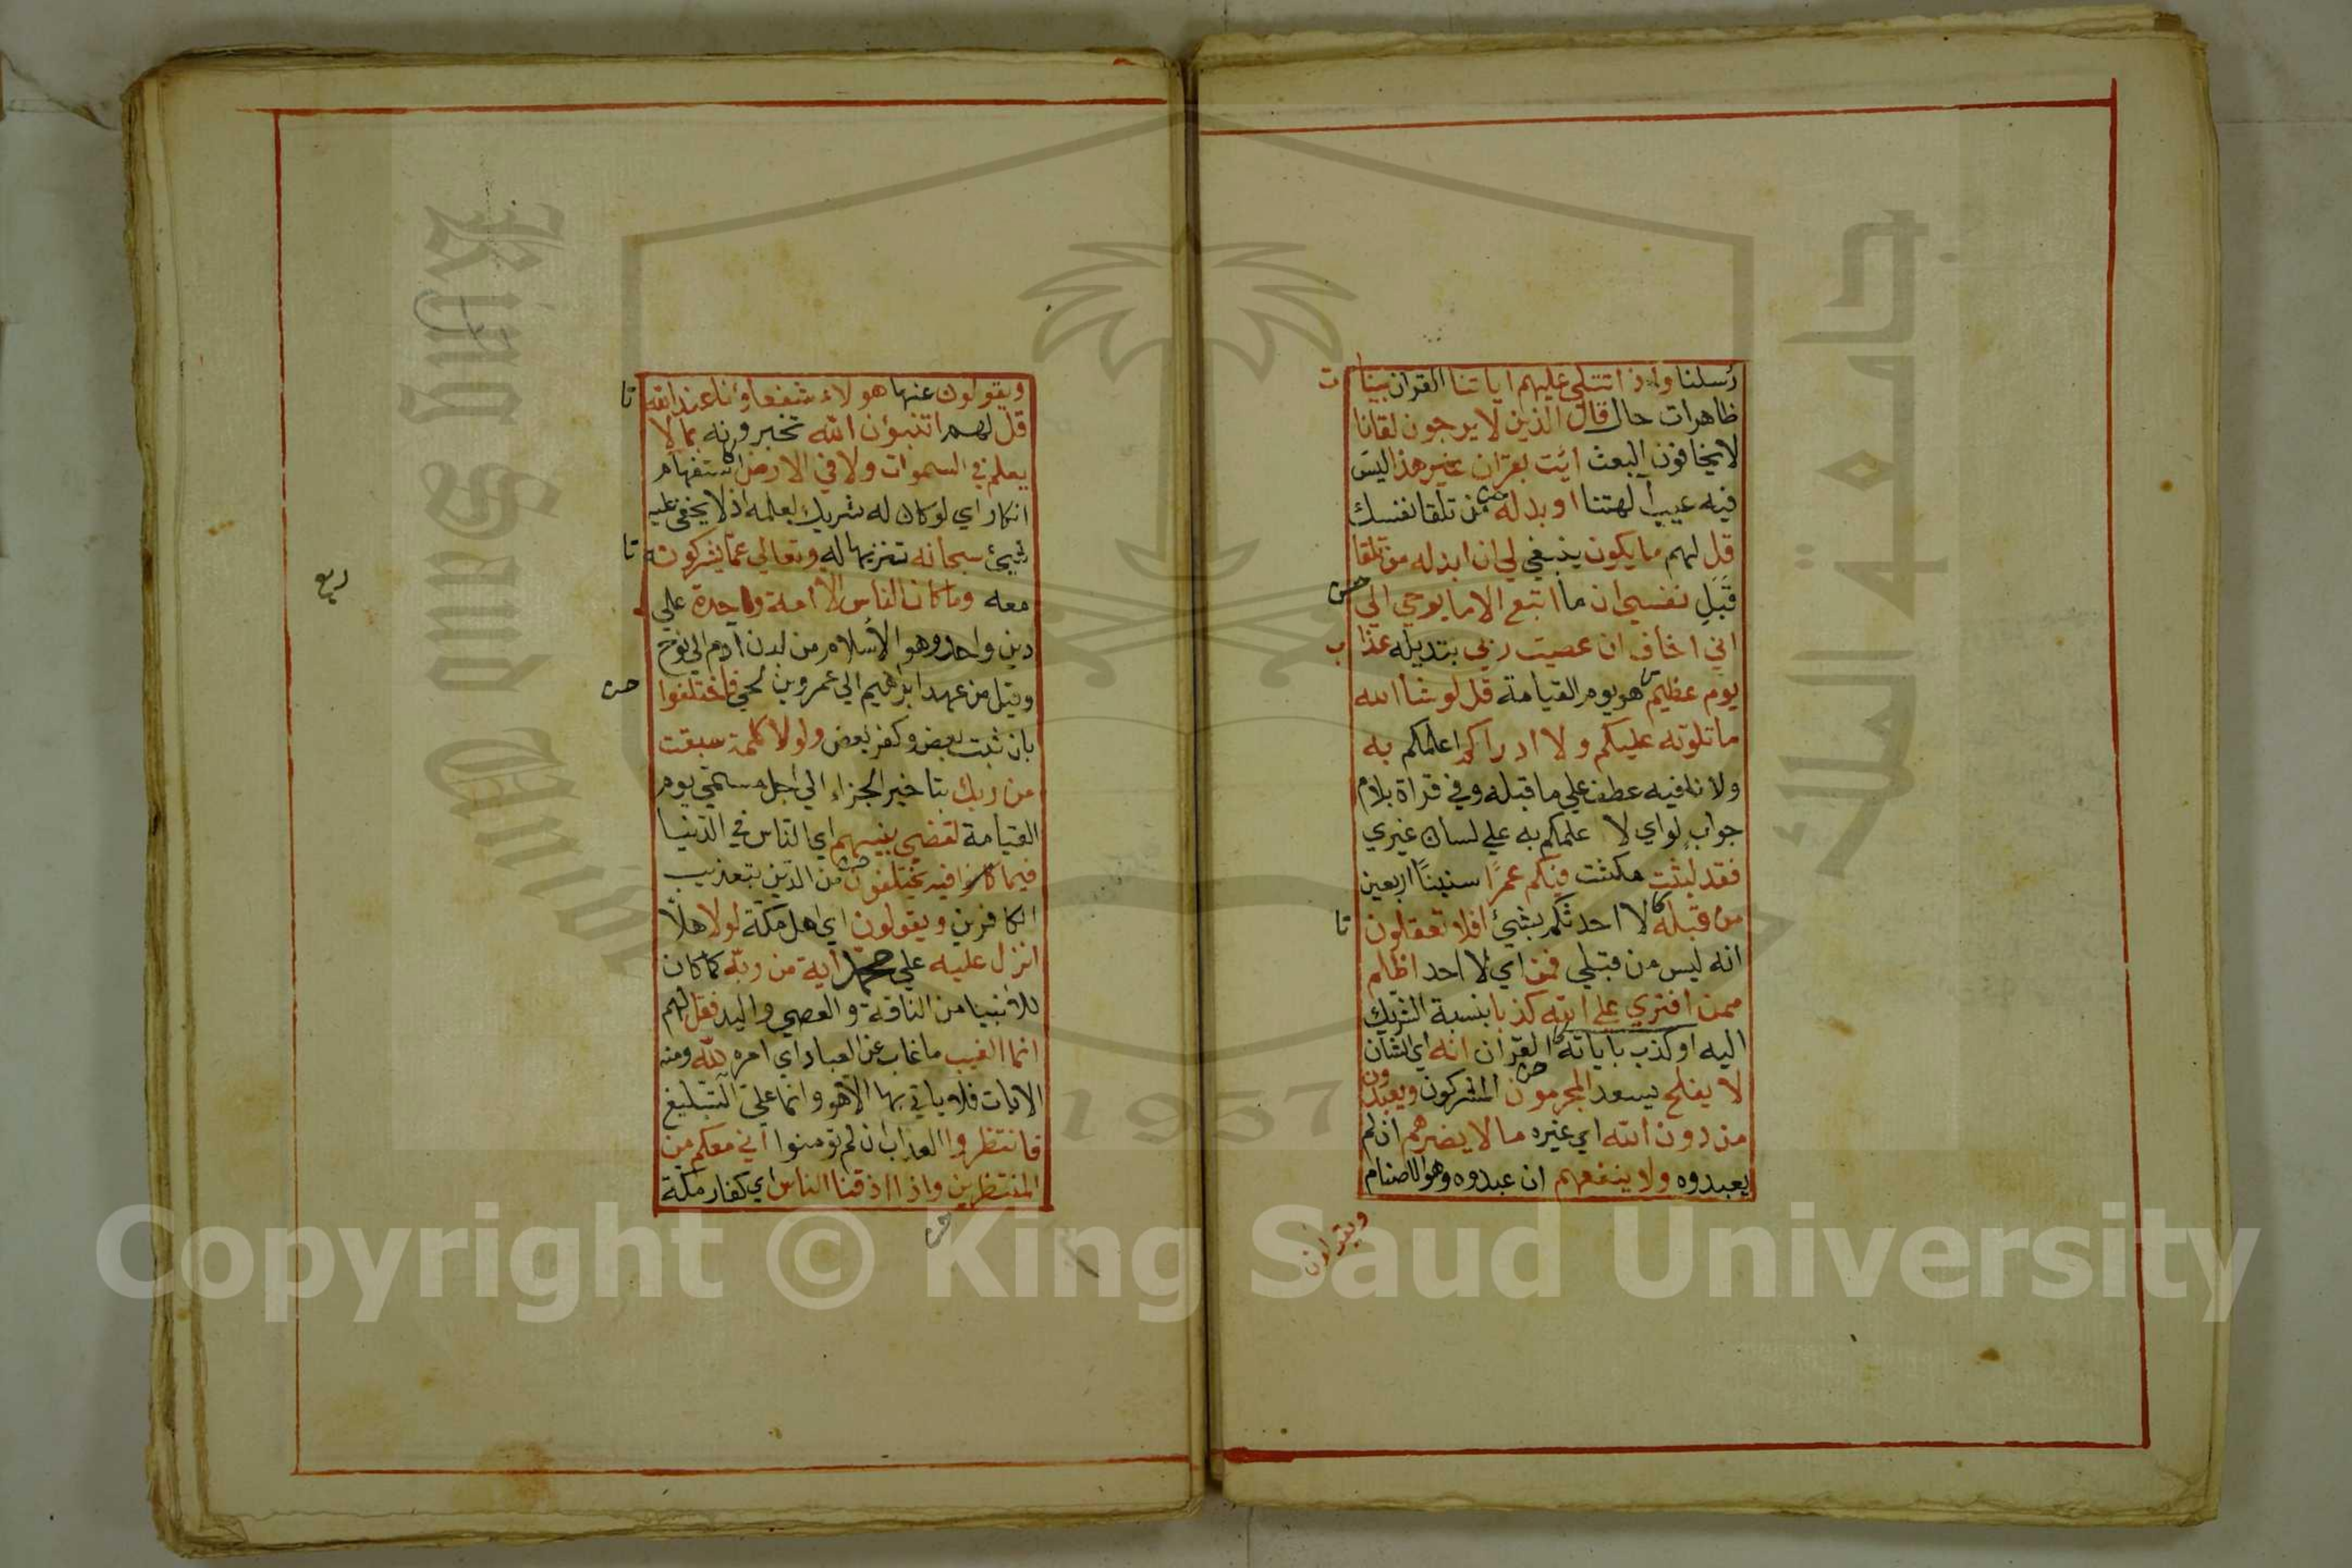 رسلنا واذا تتلي عليهم اياتنا القران بينا ت
ظاهرات حال قال الذين لا يرجون لقانا
لا يخافون البعث ائت بقران غير هذا ليس
فيه عيب آلهتنا او بدله من تلقا نفسك
قل لهم ما يكون ينبغي لي ان ابدله من تلقا
قبل نفسي ان ما اتبع الا ما يوحي الي
اني اخاف ان عصيت ربي بتديله عذا ب
يوم عظيم هو يوم القيامة قل لو شا الله
ما تلوته عليكم ولا ادراكم اعلمكم به
ولا نافيه عطف علي ما قبله وفي قراة بلام
جواب لو اي لا علمكم به علي لسان غيري
فقد لبثت مكثت فيكم عمرا سنينا اربعين
من قبله لا احدثكم بشيئ افلا تعقلون
انه ليس من قبلي فمن اي لا احد اظلم
ممن افتري علي الله كذبا بنسبة الشريك
اليه او كذب باياته القران انه اي الشان
لا يفلح يسعد المجرمون المشركون ويعبدون
من دون الله اي غيره ما لا يضرهم ان لم
يعبدوه ولا ينفعهم ان عبدوه وهو الاصنام
ويقولون
ويقولون عنها هولاء شفعاؤنا عند الله
قل لهم اتنبؤن الله تخبرونه بما لا
يعلم في السموات ولا في الارض استفهام
انكار اي لو كان له شريك لعلمه اذ لا يخفي عليه
شيئ سبحانه تنزيها له وتعالي عما يشركون
معه وما كان الناس الا امة واحدة علي
دين واحد وهو الاسلام من لدن ادم الي نوح
وقيل من عهد ابراهيم الي عمرو بن لحي فاختلفوا
بان ثبت بعض وكفر بعض ولولا كلمة سبقت
من ربك بتاخير الجزاء الي اجل مسمي يوم
القيامة لقضي بينهم اي الناس في الدنيا
فيما كانوا فيه يختلفون من الدين بتعذيب
الكافرين ويقولون اي اهل مكة لولا هلا
انزل عليه علي محمد آية من ربه كما كان
للانبيا من الناقة والعصي واليد فقل لهم
انما الغيب ما غاب عن العباد اي امره لله ومنه
الايات فلا ياتي بها الا هو وانما علي التبليغ
فانتظروا العذاب ان لم تومنوا اني معكم من
المنتظرين واذا اذقنا الناس اي كفار مكة
ربع
Copyright © King Saud University
جامعة الملك
King Saud
1957